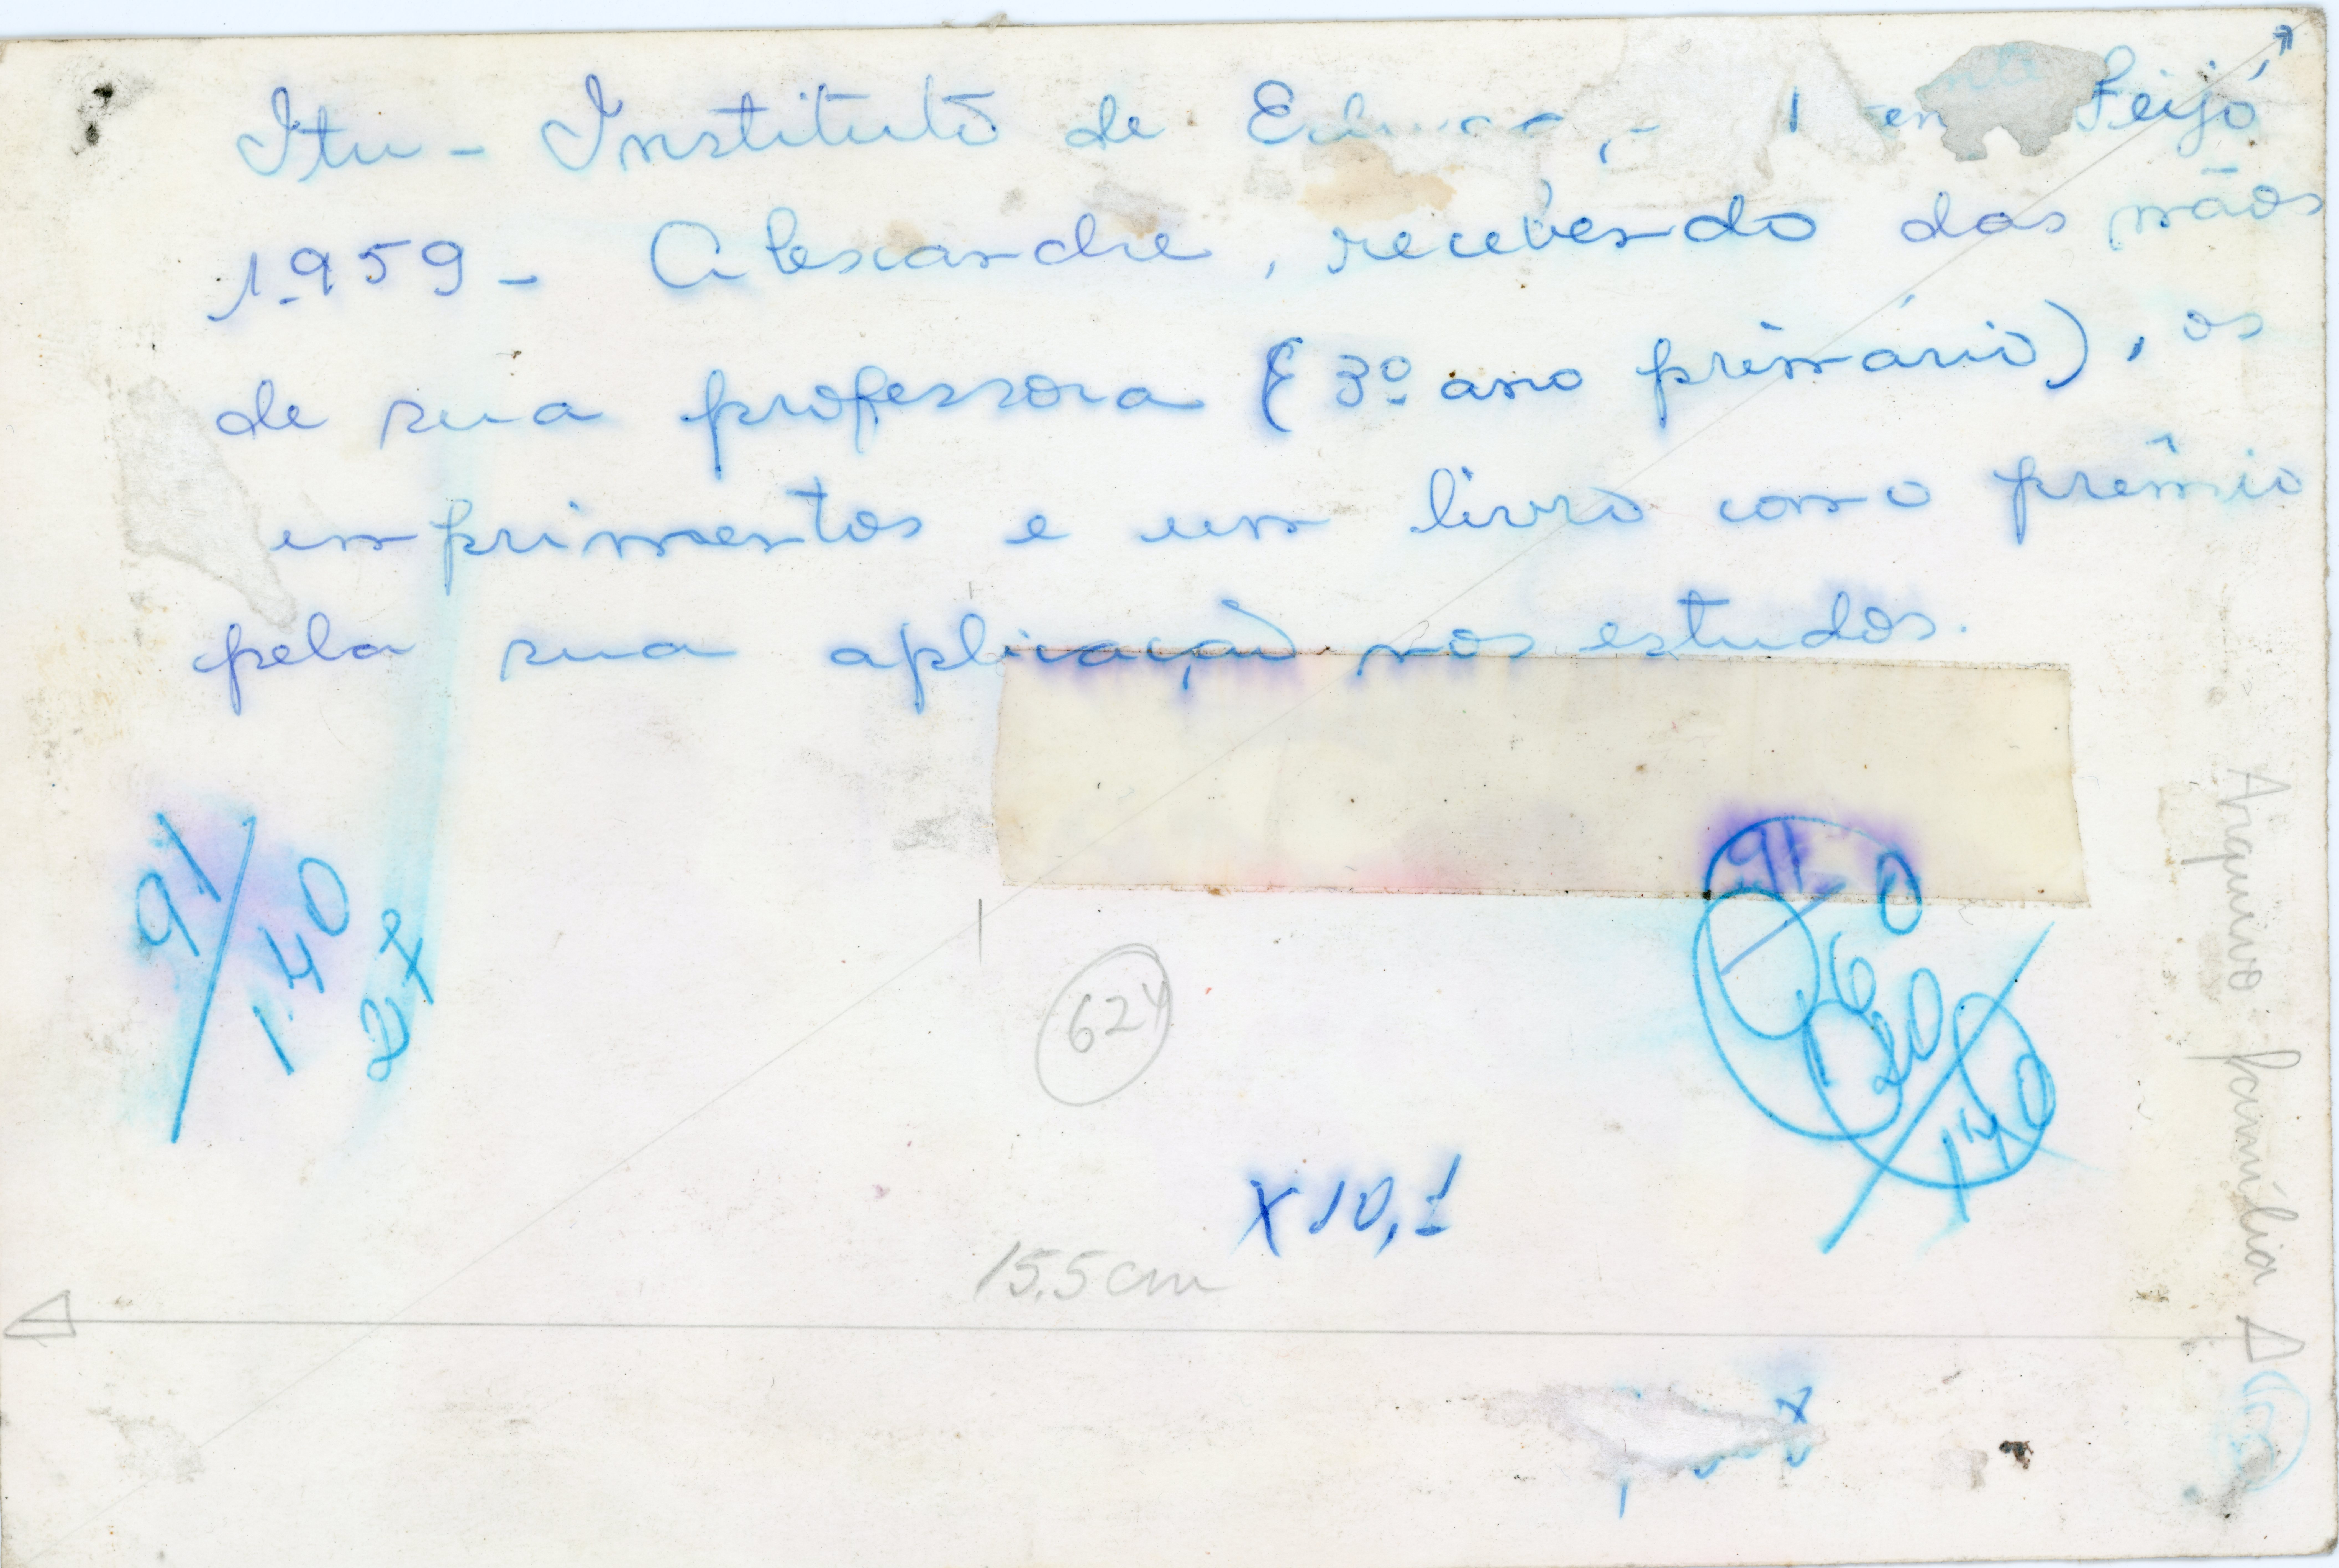 Itu - Instituto de Feijó
1.959 - Alexandre, recebendo das mãos
de sua professora (3º ano primário), os
umprimentos e um livro como prêmio
pela sua aplicação nos estudos.
91/140
27
91
60
20
140
624
X 10,1
15.5 cm
Arquivo família